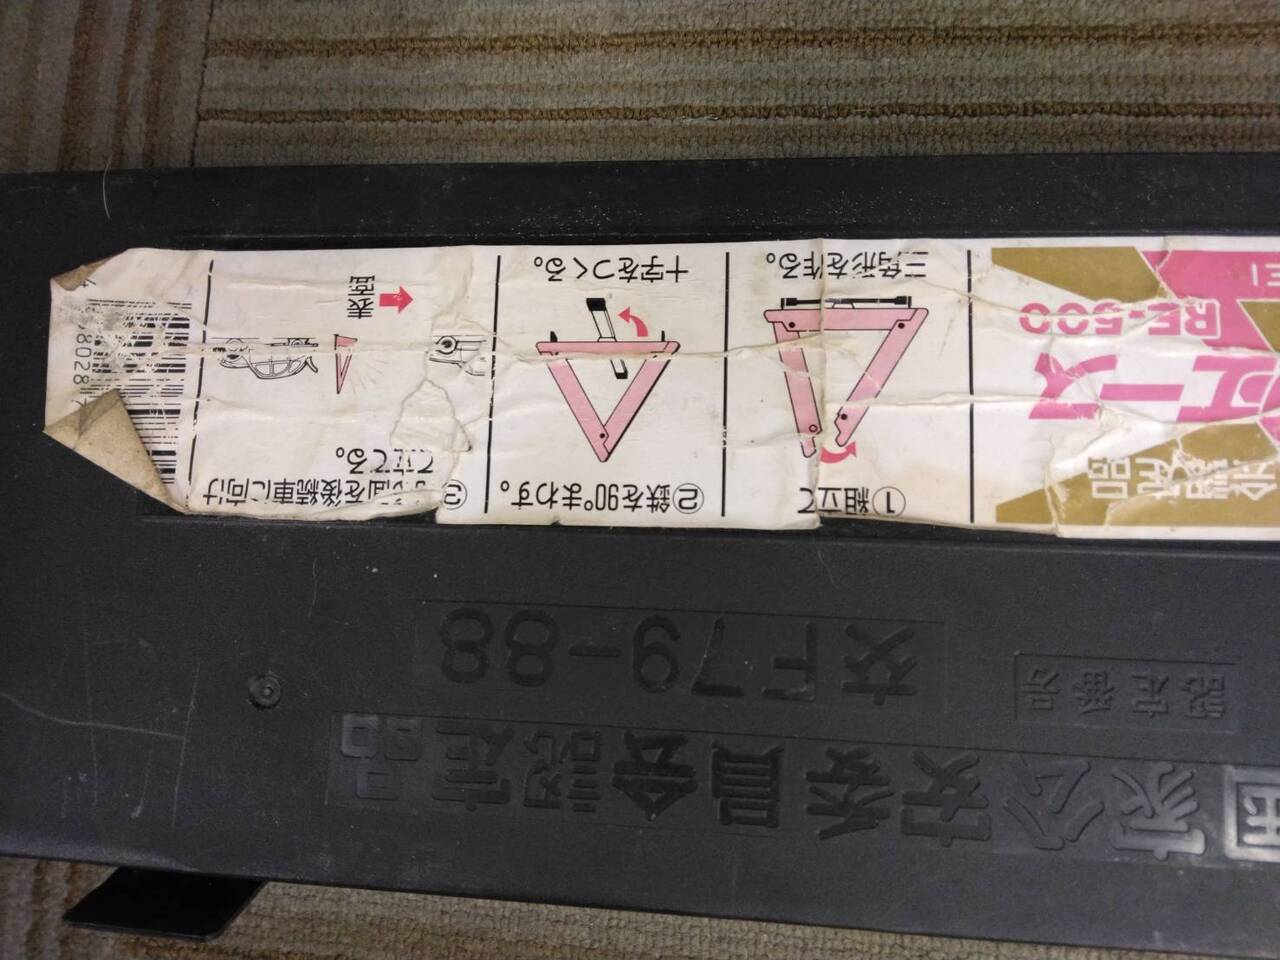 国家公安委員会認定品
認定番号
交F79-88
会認定品
エース
RE-500
EI
①組立て
三角形を作る。
②鉄を90°まわす。
十字をつくる。
③
面を後続車に向け
て立てる。
表面